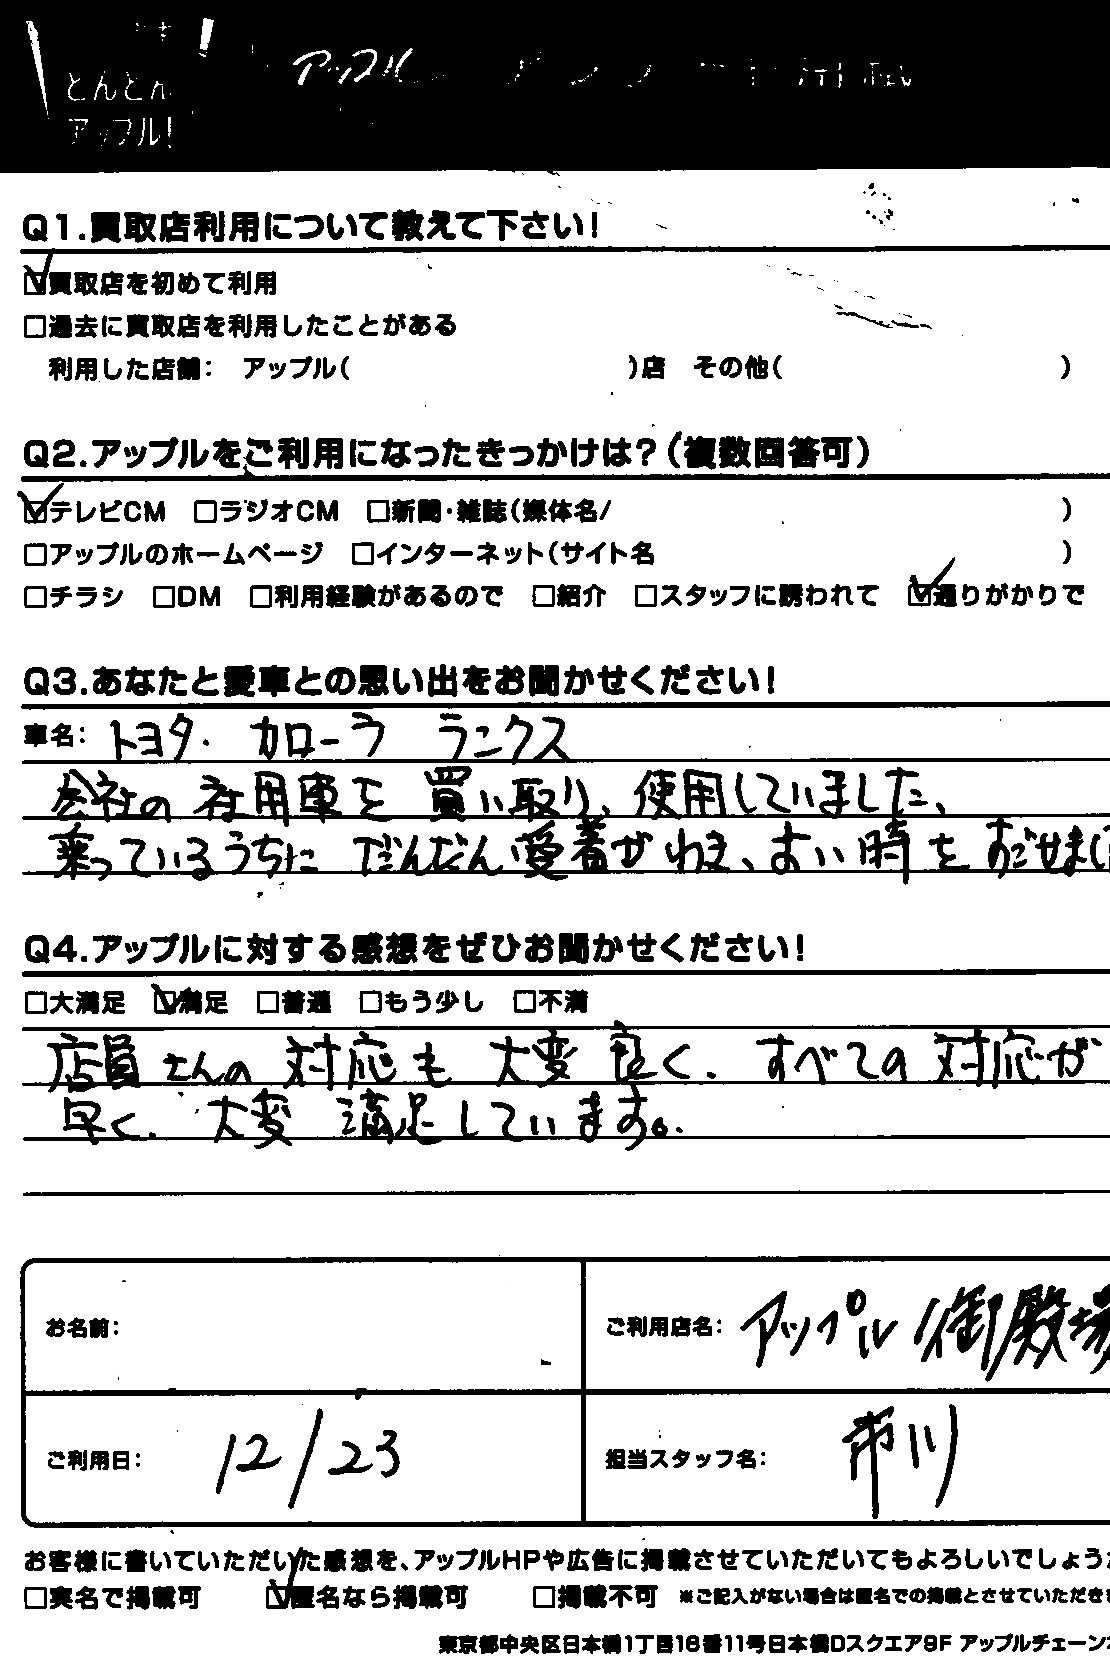 とんとん
アップル!
アップル
Q1.買取店利用について教えて下さい!
☑買取店を初めて利用
□過去に買取店を利用したことがある
利用した店舗: アップル( )店 その他( )
Q2.アップルをご利用になったきっかけは?(複数回答可)
☑テレビCM □ラジオCM □新聞・雑誌(媒体名/ )
□アップルのホームページ □インターネット(サイト名 )
□チラシ □DM □利用経験があるので □紹介 □スタッフに誘われて ☑通りがかりで
Q3.あなたと愛車との思い出をお聞かせください!
車名: トヨタ. カローラ ランクス
会社の社用車を買い取り、使用していました、
乗っているうちに だんだん愛着がわき、よい時をすごせまし
Q4.アップルに対する感想をぜひお聞かせください!
□大満足 ☑満足 □普通 □もう少し □不満
店員さんの対応も大変良く、すべての対応が
早く、大変満足しています。
お名前:
ご利用店名: アップル御殿場
ご利用日: 12/23
担当スタッフ名: 市川
お客様に書いていただいた感想を、アップルHPや広告に掲載させていただいてもよろしいでしょう
□実名で掲載可 ☑匿名なら掲載可 □掲載不可 ※ご記入がない場合は匿名での掲載とさせていただき
東京都中央区日本橋1丁目16番11号日本橋Dスクエア9F アップルチェーン